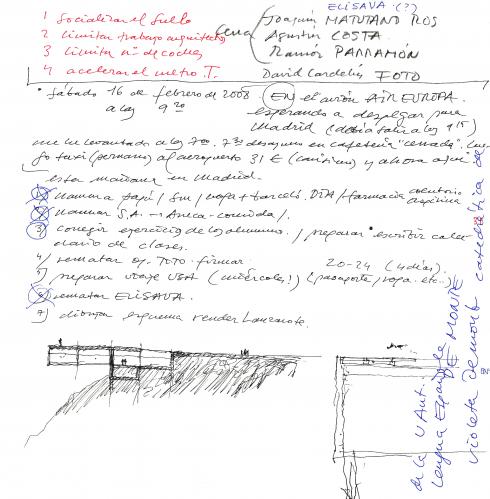 1 Socializar el suelo
2 limitar trabajo arquitectos
3 limitar nº de coches
4 acelerar el metro T.
ELISAVA (?)
Cena
Joaquín MATUTANO ROS
Agustín COSTA
Ramón PARRAMÓN
David Cardelús FOTO
• Sábado 16 de febrero de 2008 EN el avión AIR EUROPA.
a las 9 20 esperando a despegar para
Madrid (debía salir a las 9 15)
me he levantado a las 7 00. 7 35 desayuno en cafetería "cerrada". Lue-
go taxi ( ) al aeropuerto 31 € (carísimo) y ahora aquí.
esta mañana en Madrid.
1)
2) llamar S.A. → comida /.
3) corregir ejercicio de los alumnos. / preparar escribir calen
dario de clases.
4) rematar TOTO. firmar. 20-24 (4 días).
5) preparar viaje USA (miércoles!) (pasaporte / ropa. etc..)
6) rematar ELISAVA.
7) dibujar esquema render Lanzarote.
de la U Aut.
Lengua Española
DE MONTE
Violeta Demonte catedrática de